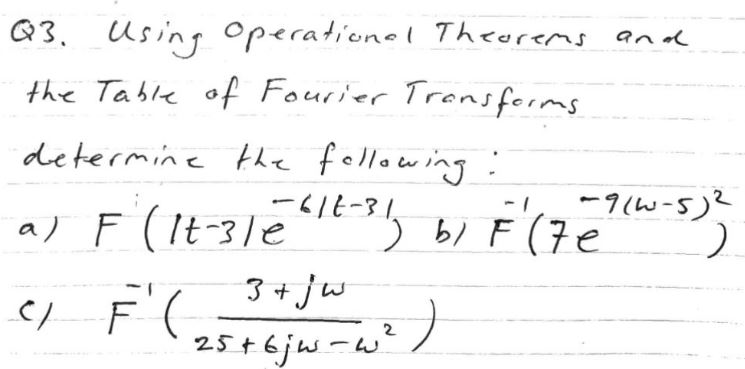 Q3. Using Operational Theorems and
the Table of Fourier Transforms
determine the following :
a) F(|t-3|e^{-6|t-3|}) b) F^{-1}(7e^{-9(w-5)^2})
c) F^{-1}( \frac{3+jw}{25+6jw-w^2} )